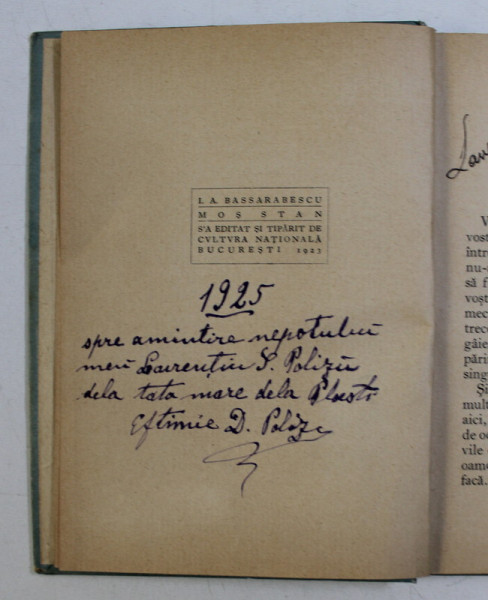 I. A. BASSARABESCU
MOȘ STAN
S'A EDITAT ȘI TIPĂRIT DE
CVLTVRA NAȚIONALĂ
BUCUREȘTI 1923
1925
spre amintire nepotului
meu Laurențiu S. Polizu
dela tata mare dela Ploesti
Eftimie D. Polizu
Lau
V
vost
într
nu-
să f
voșt
mec
trec
gâie
pări
sing
Și
mult
aici,
de oc
vile
oame
facă.